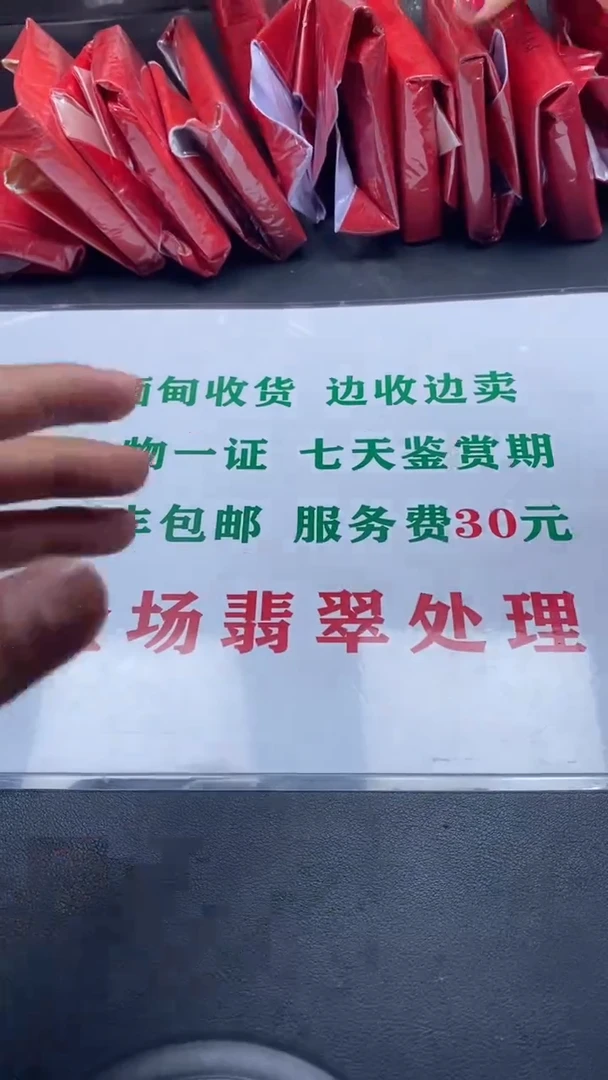 缅甸收货 边收边卖
物一证 七天鉴赏期
丰包邮 服务费30元
场翡翠处理